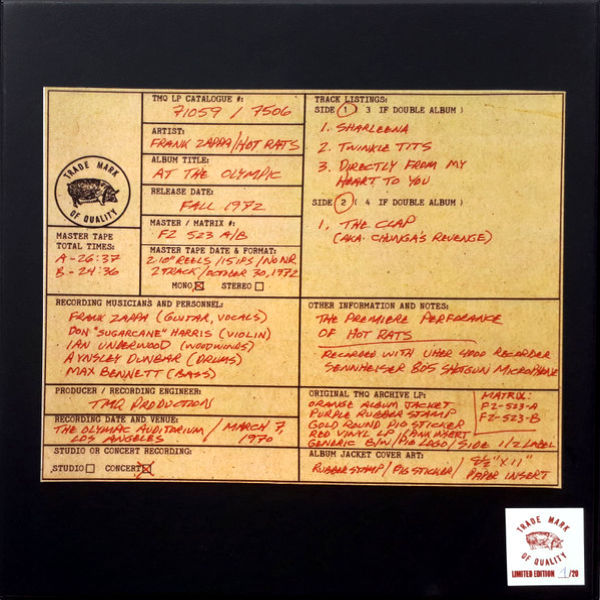 TMQ LP CATALOGUE #:
71059 / 7506
ARTIST:
FRANK ZAPPA/HOT RATS
ALBUM TITLE:
AT THE OLYMPIC
RELEASE DATE:
FALL 1972
MASTER / MATRIX #:
FZ 523 A/B
MASTER TAPE DATE & FORMAT:
2 10" REELS / 15 IPS / NO NR
2 TRACK / OCTOBER 30, 1972
MONO STEREO
TRADE MARK
OF QUALITY
MASTER TAPE
TOTAL TIMES:
A - 26:37
B - 24:36
TRACK LISTINGS:
SIDE 1 ( 3 IF DOUBLE ALBUM )
1. SHARLEENA
2. TWINKLE TITS
3. DIRECTLY FROM MY
HEART TO YOU
SIDE 2 ( 4 IF DOUBLE ALBUM )
1. THE CLAP
(AKA CHUNGA'S REVENGE)
RECORDING MUSICIANS AND PERSONNEL:
FRANK ZAPPA (GUITAR, VOCALS)
DON "SUGARCANE" HARRIS (VIOLIN)
IAN UNDERWOOD (WOODWINDS)
AYNSLEY DUNBAR (DRUMS)
MAX BENNETT (BASS)
OTHER INFORMATION AND NOTES:
THE PREMIERE PERFORMANCE
OF HOT RATS
RECORDED WITH UHER 4000 RECORDER
SENNHEISER 805 SHOTGUN MICROPHONE
PRODUCER / RECORDING ENGINEER:
TMQ PRODUCTION
RECORDING DATE AND VENUE:
THE OLYMPIC AUDITORIUM / MARCH 7
LOS ANGELES 1970
STUDIO OR CONCERT RECORDING:
STUDIO CONCERT
ORIGINAL TMQ ARCHIVE LP:
ORANGE ALBUM JACKET
PURPLE RUBBER STAMP
GOLD ROUND PIG STICKER
RED VINYL LP / PINK INSERT
GENERIC B/W / PIG LOGO / SIDE 1/2 LABEL
MATRIX:
FZ-523-A
FZ-523-B
ALBUM JACKET COVER ART:
RUBBER STAMP / PIG STICKER / 8½" X 11"
PAPER INSERT
TRADE MARK
OF QUALITY
LIMITED EDITION 1/20